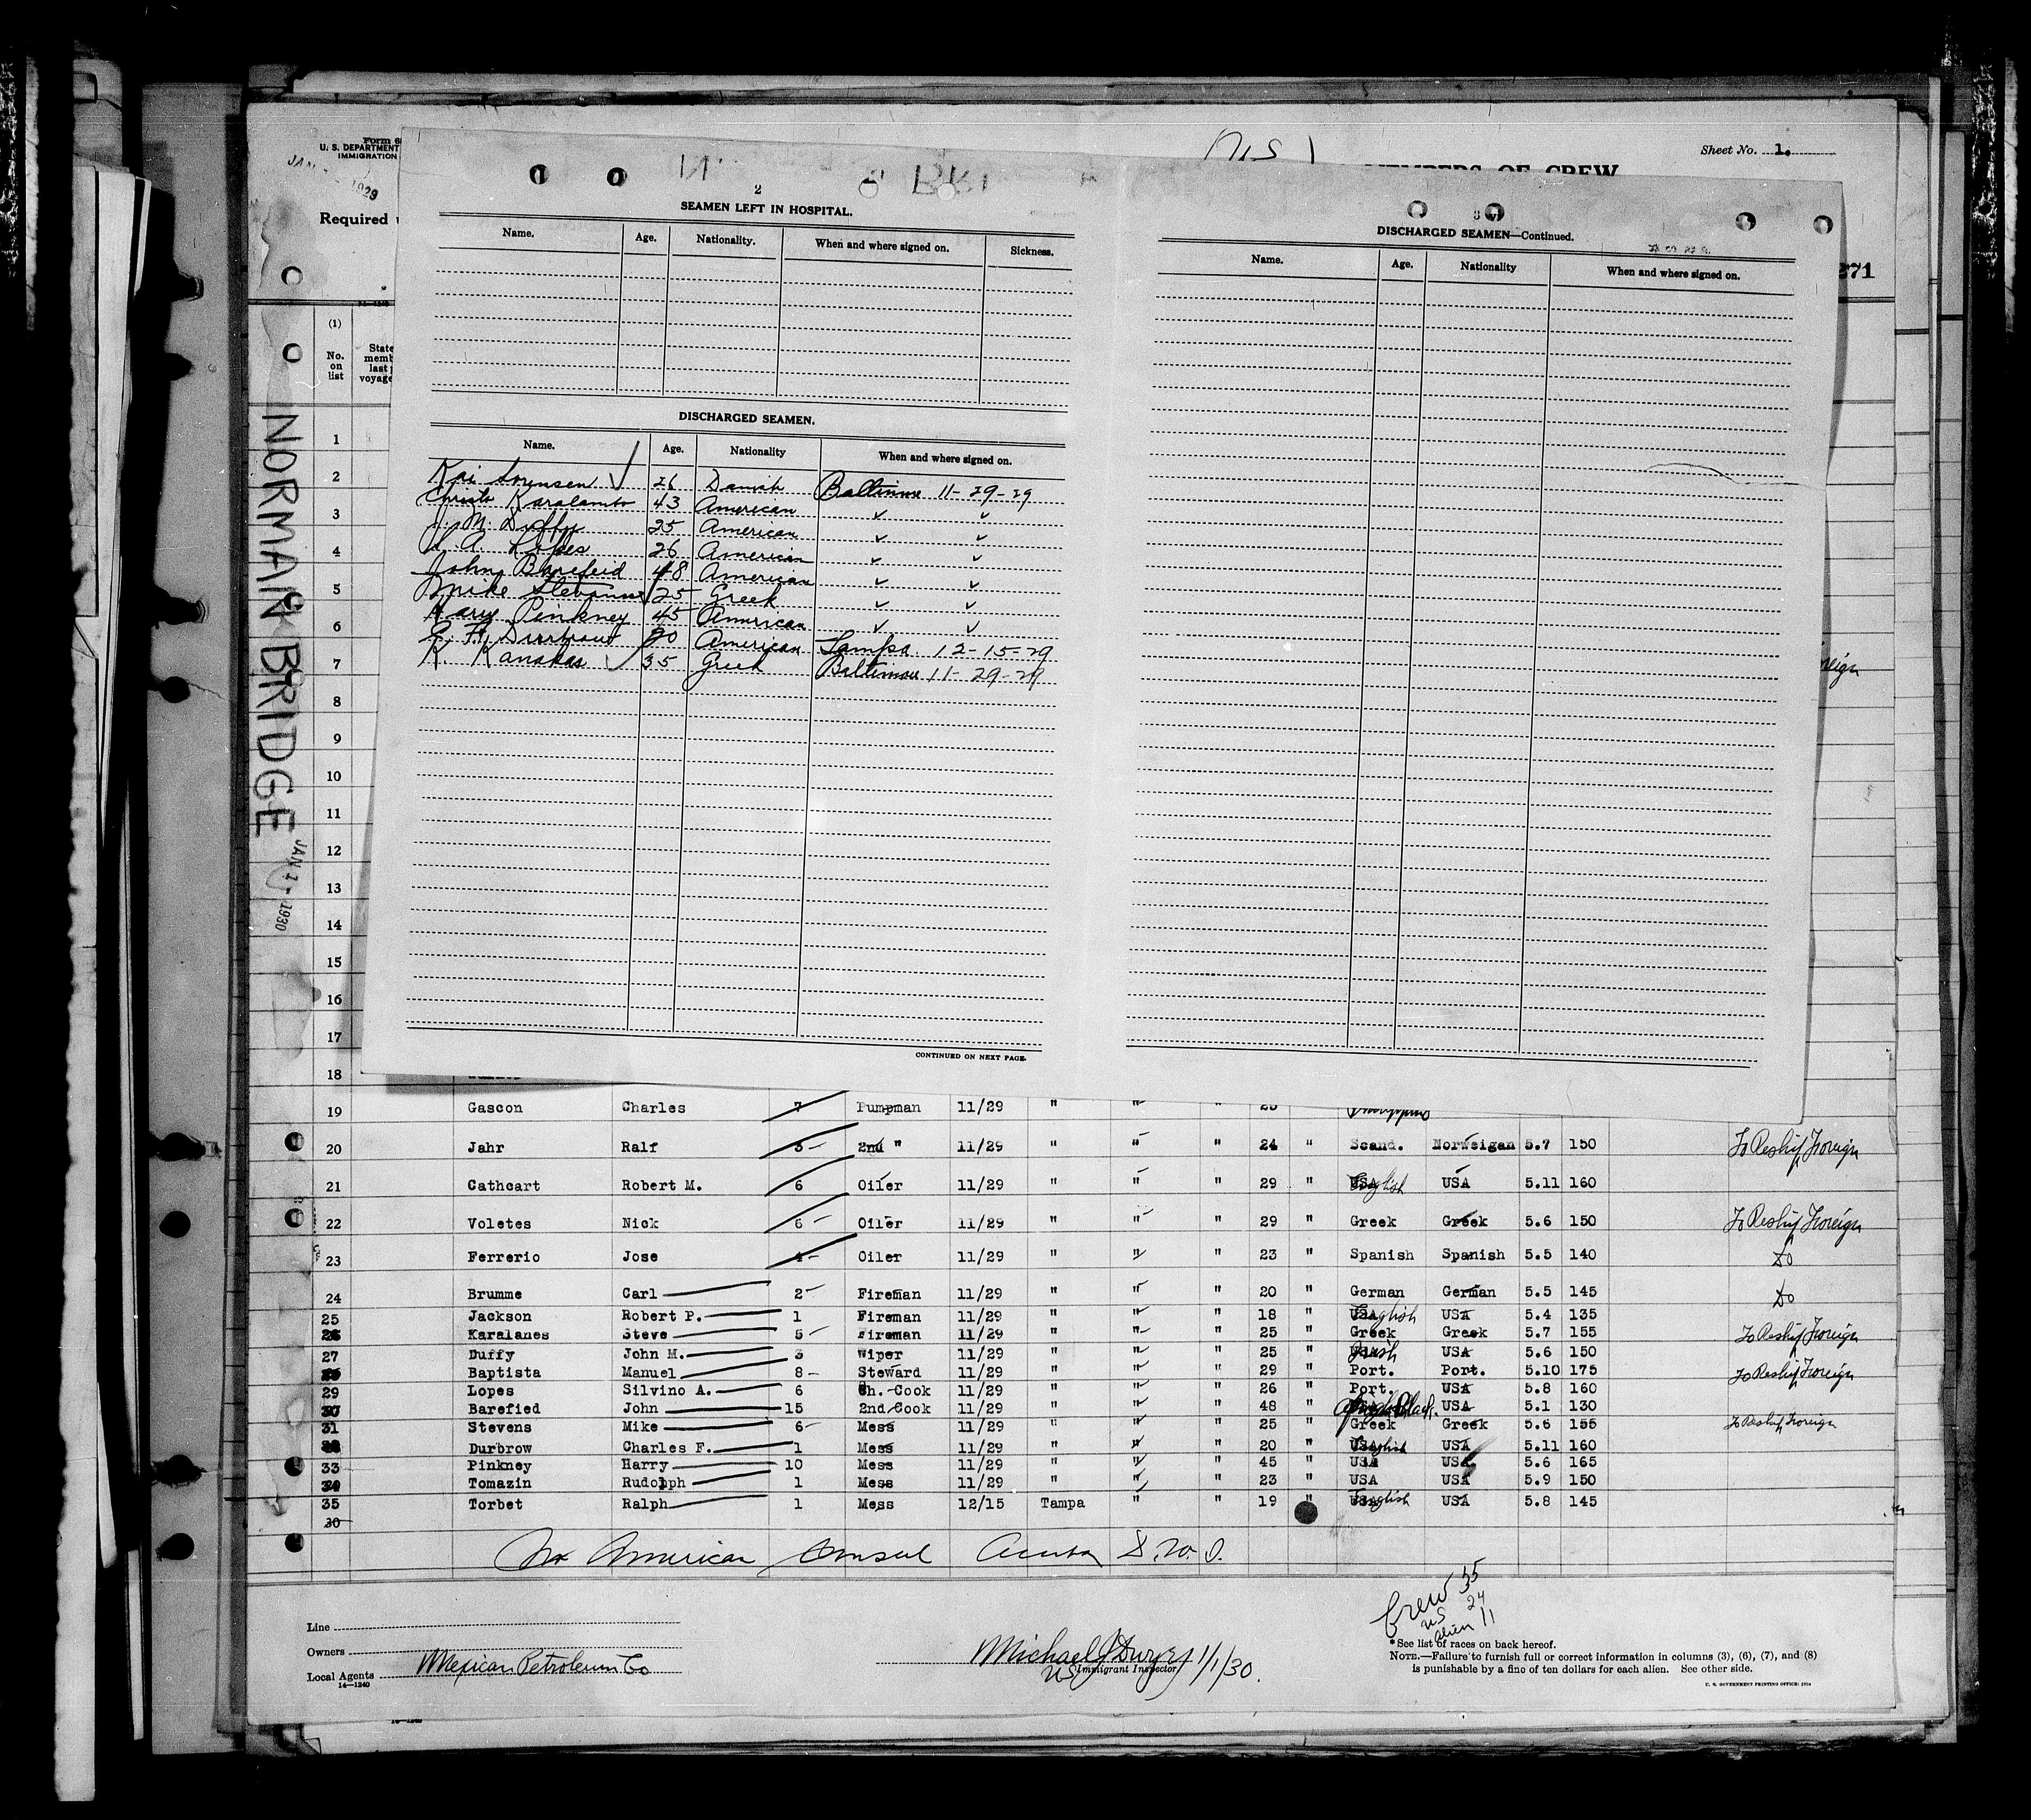 Form 6
U. S. DEPARTMENT
IMMIGRATION
1929
Required
Sheet No. 1.
MEMBERS OF CREW
271
(1)
No. on list
State
memb
last
voyage
NORMAN BRIDGE
JAN 1 - 1930
2
SEAMEN LEFT IN HOSPITAL.
Name. Age. Nationality. When and where signed on. Sickness.
DISCHARGED SEAMEN.
Name. Age. Nationality When and where signed on.
Kai Sorensen 26 Danish Baltimore 11-29-29
Christo Karalambo 43 American ✓ ✓
J. M. Duffy 25 American ✓ ✓
S A. Lopes 26 American ✓ ✓
John Barefeid 48 American ✓ ✓
Mike Stevanns 25 Greek ✓ ✓
Harry Pinkney 45 American ✓ ✓
20 American Tampa 12-15-29
K Kanakas 35 Greek Baltimore 11-29-29
CONTINUED ON NEXT PAGE.
3
DISCHARGED SEAMEN—Continued.
Name. Age. Nationality When and where signed on.
1
2
3
4
5
6
7
8
9
10
11
12
13
14
15
16
17
18
19 Gascon Charles 7 Pumpman 11/29 " " " 25
20 Jahr Ralf 3 2nd " 11/29 " " " 24 " Scand. Norweigan 5.7 150 To Reship Foreign
21 Cathcart Robert M. 6 Oiler 11/29 " " " 29 " English USA 5.11 160
22 Voletes Nick 6 Oiler 11/29 " " " 29 " Greek Greek 5.6 150 To Reship Foreign
23 Ferrerio Jose 4 Oiler 11/29 " " " 23 " Spanish Spanish 5.5 140 Do
24 Brumme Carl 2 Fireman 11/29 " " " 20 " German German 5.5 145 Do
25 Jackson Robert P. 1 Fireman 11/29 " " " 18 " English USA 5.4 135
26 Karalanes Steve 5 Fireman 11/29 " " " 25 " Greek Greek 5.7 155 To Reship Foreign
27 Duffy John M. 3 Wiper 11/29 " " " 25 " Irish USA 5.6 150
Baptista Manuel 8 Steward 11/29 " " " 29 " Port. Port. 5.10 175 To Reship Foreign
29 Lopes Silvino A. 6 Ch. Cook 11/29 " " " 26 " Port. USA 5.8 160
30 Barefied John 15 2nd Cook 11/29 " " " 48 " Black. USA 5.1 130
31 Stevens Mike 6 Mess 11/29 " " " 25 " Greek Greek 5.6 155 To Reship Foreign
Durbrow Charles F. 1 Mess 11/29 " " " 20 " English USA 5.11 160
33 Pinkney Harry 10 Mess 11/29 " " " 45 " USA USA 5.6 165
34 Tomazin Rudolph 1 Mess 11/29 " " " 23 " USA USA 5.9 150
35 Torbet Ralph 1 Mess 12/15 Tampa " " 19 " English USA 5.8 145
30
No American Consul Aruba D.W.I.
Crew 35
US 24
Alien 11
Line
Owners
Local Agents Mexican Petroleum Co
14—1240
Michael J Dwyer 1/1/30.
US Immigrant Inspector
* See list of races on back hereof.
NOTE.—Failure to furnish full or correct information in columns (3), (6), (7), and (8)
is punishable by a fine of ten dollars for each alien. See other side.
U. S. GOVERNMENT PRINTING OFFICE